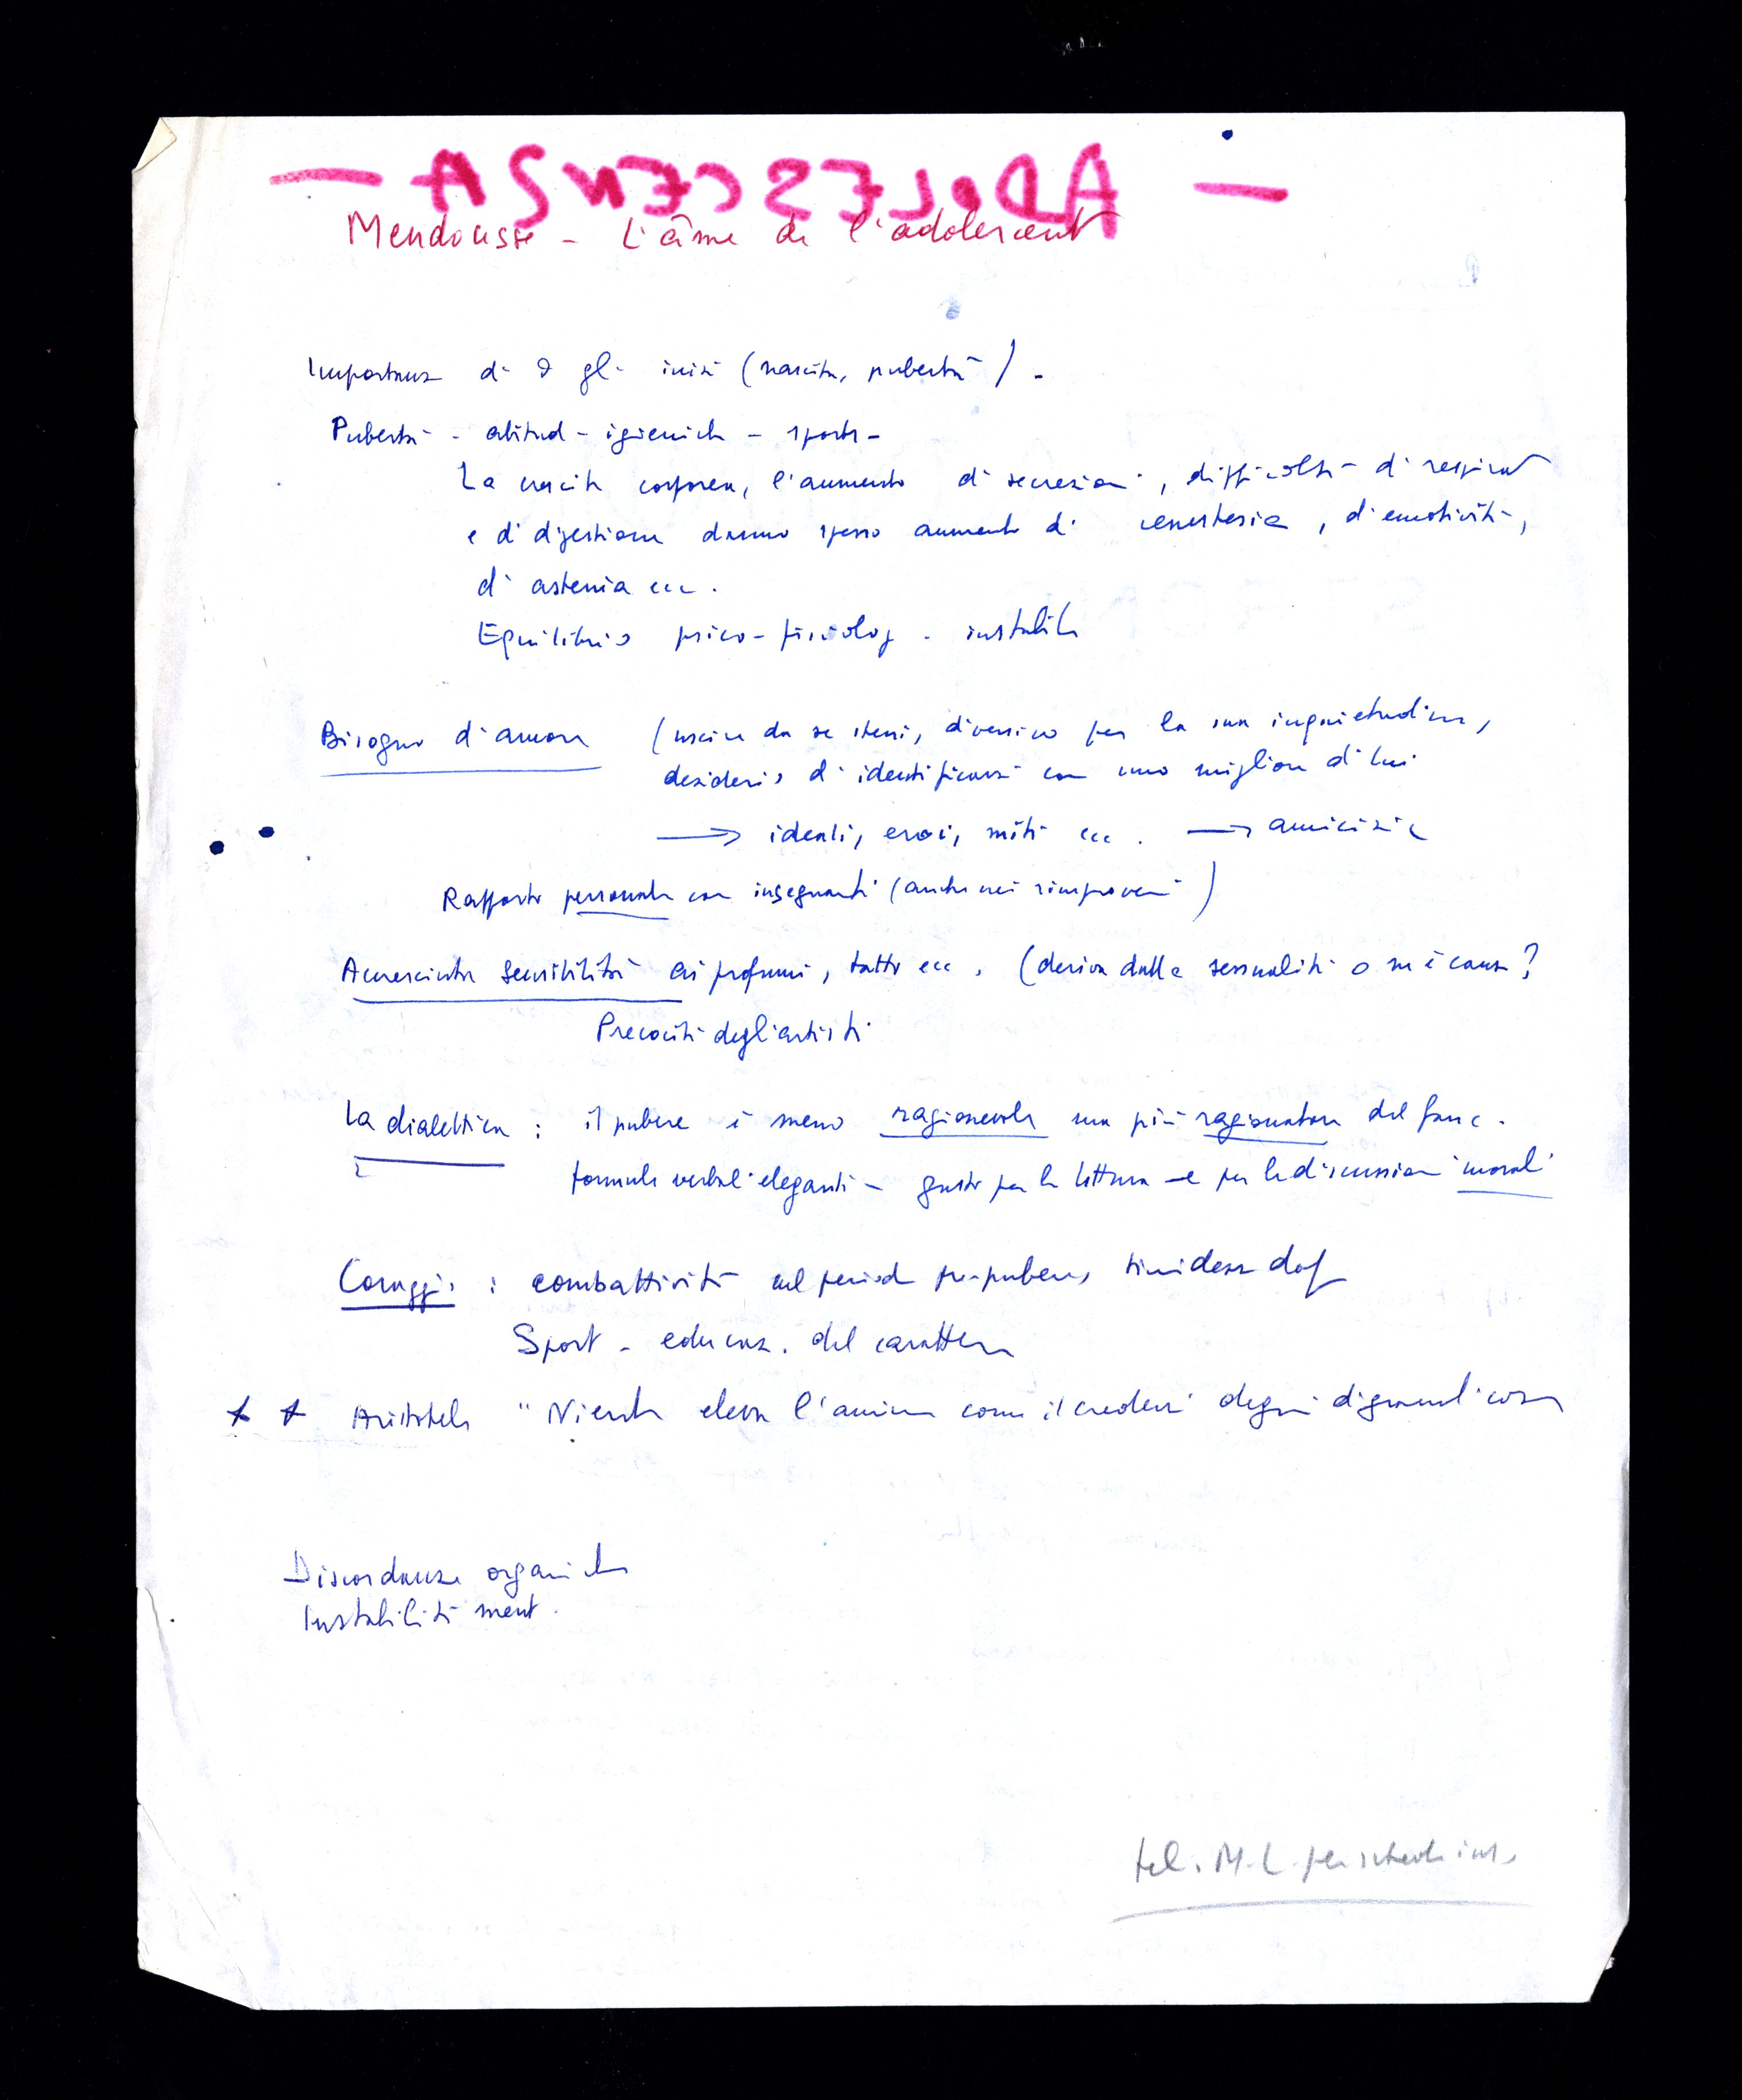 — ADOLESCENZA —
Mendousse - L'âme de l'adolescent
Importanza di gli inizi (nascita, pubertà) -
Pubertà - abitud - igieniche - sport -
La crescita corporea, l'aumento di secrezioni, difficoltà di respiraz
e di digestione danno spesso aumento di cenestesia, d'emotività,
di astenia ecc.
Equilibrio psico-fisiolog. instabile
Bisogno d'amore (uscire da se stessi, diversivo per la sua inquietudine,
desiderio di identificarsi con uno migliore di lui
→ ideali, eroi, miti ecc. → amicizie
Rapporto personale con insegnanti (anche nei rimproveri)
Accresciuta sensibilità ai profumi, tatto ecc. (deriva dalla sessualità o ne è causa?
Precocità degli artisti
La dialettica : il pubere è meno ragionevole ma più ragionatore del fanc.
formule verbali eleganti - gusto per la lettura e per le discussioni morali
Coraggio : combattività nel periodo pre-pubere, timidezza dop
Sport - educaz. del carattere
Aristotele "Niente eleva l'animo come il credersi degni di grandi cose
Discordanze organiche
Instabilità ment.
tel. M.L. per schede ins.